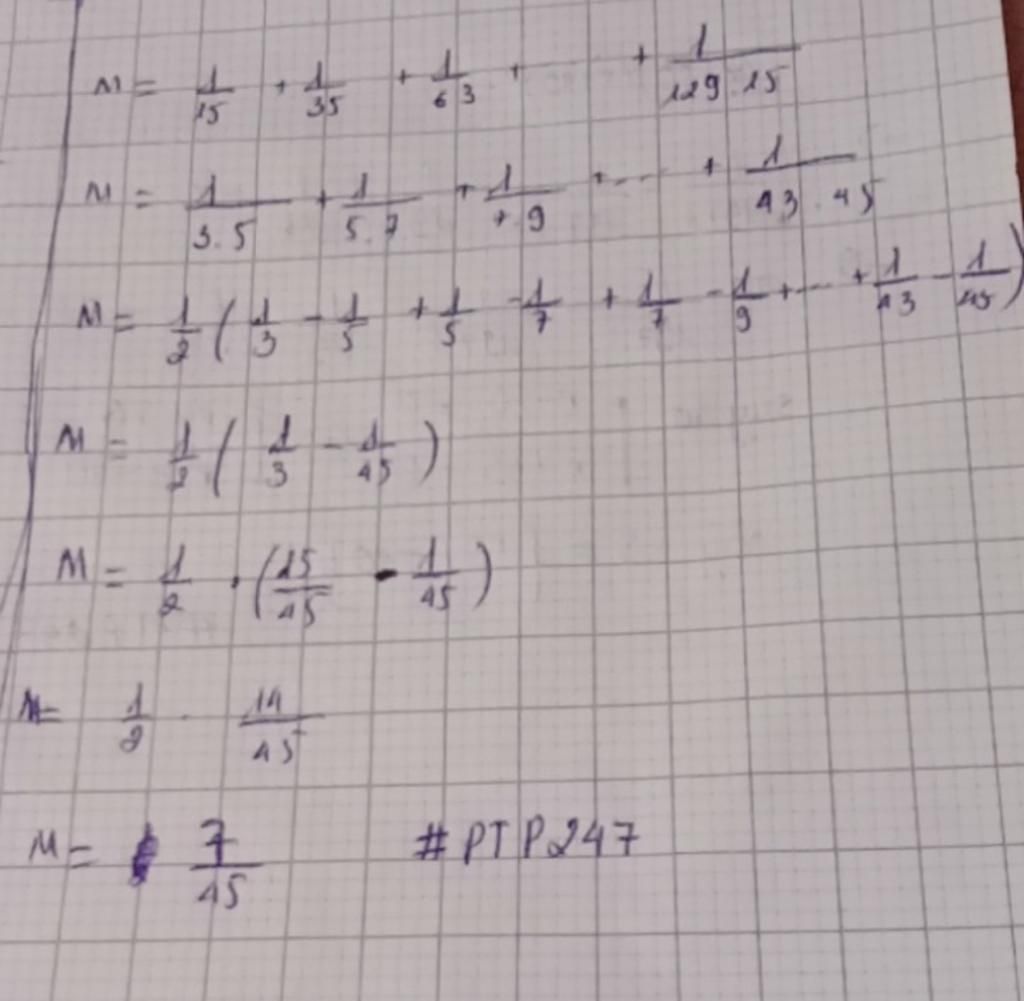 M = 1/15 + 1/35 + 1/63 + + 1/129.15
M = 1/3.5 + 1/5.7 + 1/7.9 + ... + 1/43.45
M = 1/2 ( 1/3 - 1/5 + 1/5 - 1/7 + 1/7 - 1/9 + ... + 1/43 - 1/45 )
M = 1/2 ( 1/3 - 1/45 )
M = 1/2 . ( 15/45 - 1/45 )
M = 1/2 . 14/45
M = 7/45 # PTP247